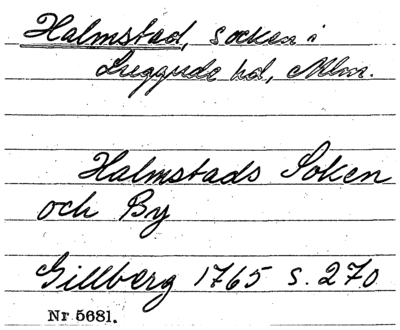 Halmstad, socken i
Luggude hd, Mlm.
Halmstads Soken
och By
Gillberg 1765 s. 270
Nr 5681.